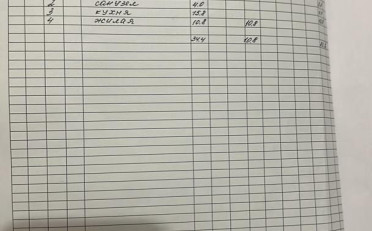 2 санузел 4.0
3 кухня 15.8
4 жилая 10.8 10.8
34.4 10.8